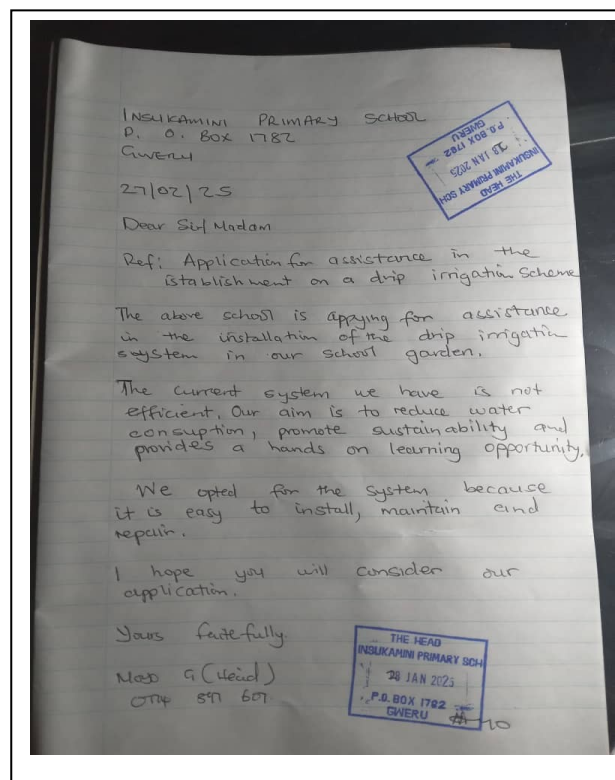 INSUKAMINI PRIMARY SCHOOL
P. O. BOX 1782
GWERU
THE HEAD
INSUKAMINI PRIMARY SCH
28 JAN 2025
P.O. BOX 1782
GWERU
27/02/25
Dear Sir/Madam
Ref: Application for assistance in the
istablishment on a drip irrigation Scheme
The above school is appying for assistance
in the installation of the drip irrigatin
seystem in our school garden.
The current system we have is not
efficient. Our aim is to reduce water
consuption, promote sustainability and
provides a hands on learning opportunity.
We opted for the system because
it is easy to install, maintain and
repair.
I hope you will consider our
application.
Yours faitefully
G (Head)
THE HEAD
INSUKAMINI PRIMARY SCH
28 JAN 2025
P.O. BOX 1782
GWERU